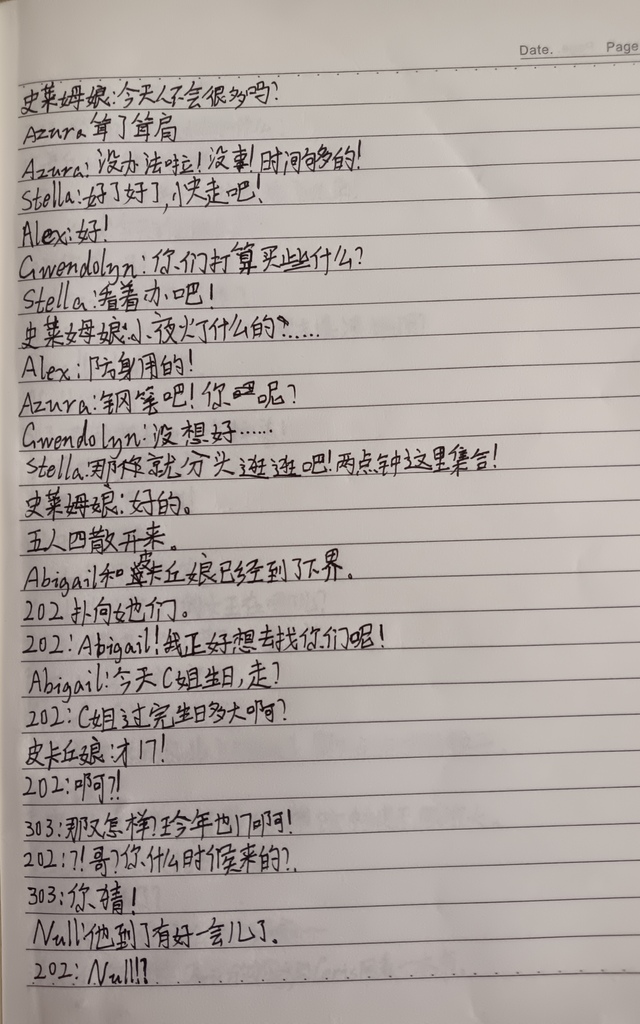 Date. Page
史莱姆娘:今天人不会很多吗?
Azura耸了耸肩
Azura:没办法啦!没事!时间够多的!
Stella:好了好了,快走吧!
Alex:好!
Gwendolyn:你们打算买些什么?
Stella:看着办吧!
史莱姆娘:小夜灯什么的?……
Alex:防身用的!
Azura:钢笔吧!你呢?
Gwendolyn:没想好……
Stella:那你就分头逛逛吧!两点钟这里集合!
史莱姆娘:好的。
五人四散开来。
Abigail和皮卡丘娘已经到了下界。
202扑向她们。
202:Abigail!我正好想去找你们呢!
Abigail:今天C姐生日,走?
202:C姐过完生日多大啊?
皮卡丘娘:才17!
202:啊?!
303:那又怎样?珏今年也17啊!
202:?!哥?你什么时候来的?.
303:你猜!
Null:他到了有好一会儿了.
202:Null!?